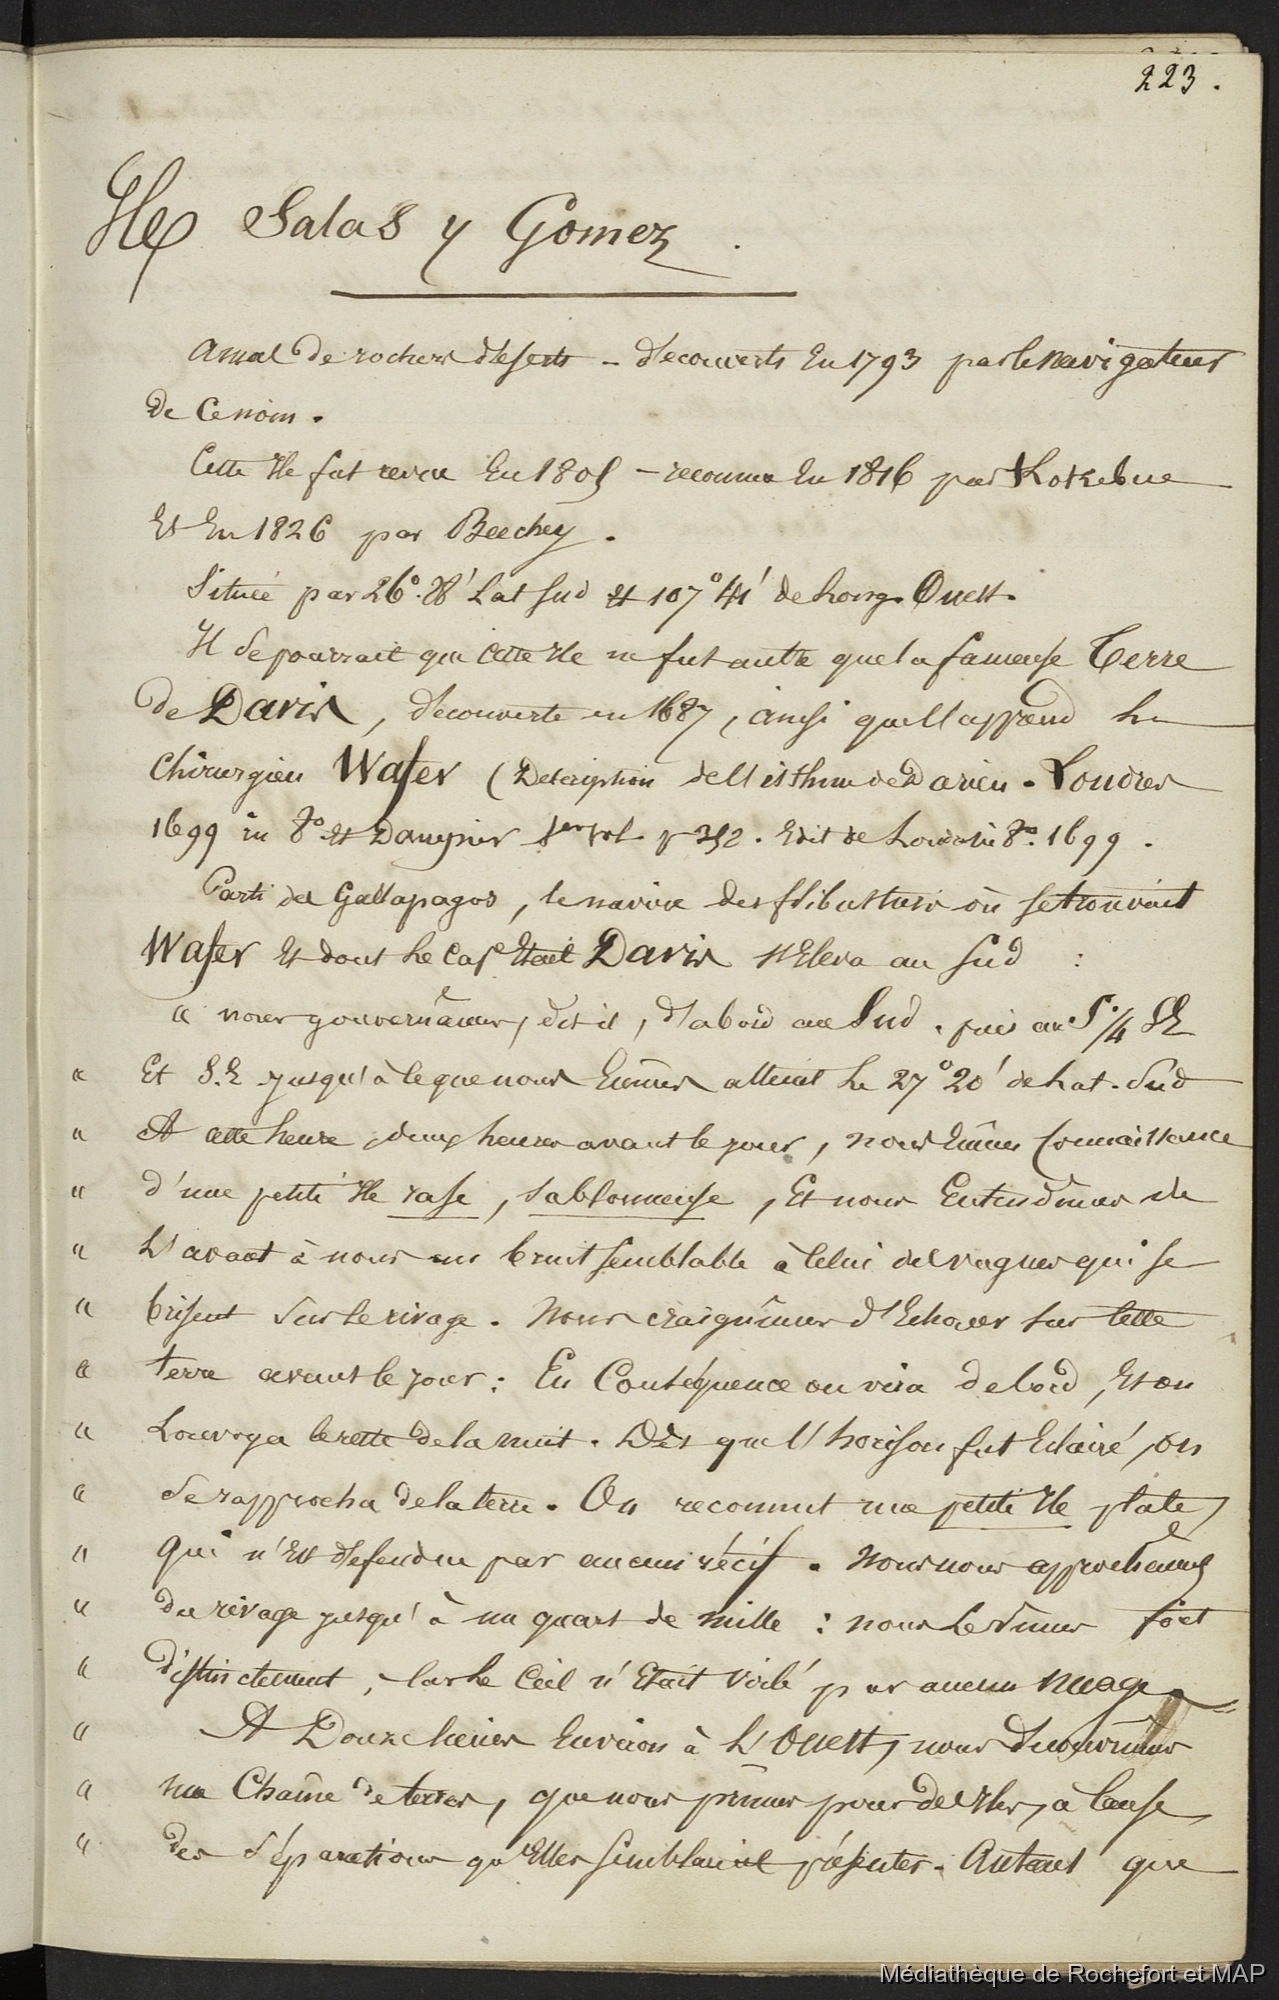 223.
Ile Salas y Gomez.
Amas de rochers déserts - découverts En 1793 par le navigateur
de Ce nom.
Cette Ile fut revue En 1805 - reconnue En 1816 par Kotzebue
Et En 1826 par Beechey.
Située par 26°. 28' Lat Sud et 107° 41' de Long. Ouest.
Il se pourrait que Cette Ile ne fut autre que la fameuse Terre
de Davis, découverte en 1687, ainsi que l'apprend Le
Chirurgien Wafer (Description de l'isthme de Darien. Londres
1699 in 8° et Dampier 1er vol. p 352. Edit de Londres in 8°. 1699.
Parti des Gallapagos, le navire des flibustiers où se trouvait
Wafer Et dont Le Cap Etait Davis s'Eleva au Sud :
" nous gouvernâmes, dit il, d'abord au Sud, puis au S. 1/4 SE
" Et S.E jusqu'à ce que nous Eumes atteint Le 27° 20' de Lat. Sud
" A cette heure, deux heures avant le jour, nous Eûmes Connaissance
" d'une petite Ile rase, sablonneuse, Et nous Entendîmes de
" L'avant à nous un bruit semblable à Celui des vagues qui se
" brisent Sur le rivage. Nous craignîmes d'Echouer sur Cette
" terre avant le jour : En Conséquence on vira de bord, Et on
" Louvoya le reste de la nuit. Dès que l'horison fut Eclairé, on
" se rapprocha de la terre. On reconnut une petite Ile plate,
" qui n'Est défendue par aucun récif. Nous nous approchames
" du rivage jusqu'à un quart de mille : nous Le vîmes fort
" distinctement, Car Le Ciel n'Etait voilé par aucun nuage.
" A Douze lieues Environ à L'Ouest, nous découvrîmes
" une Chaîne de terres, que nous prîmes pour des Iles, à Cause
" des séparations qu'Elles semblaient présenter. Autant que
Médiathèque de Rochefort et MAP